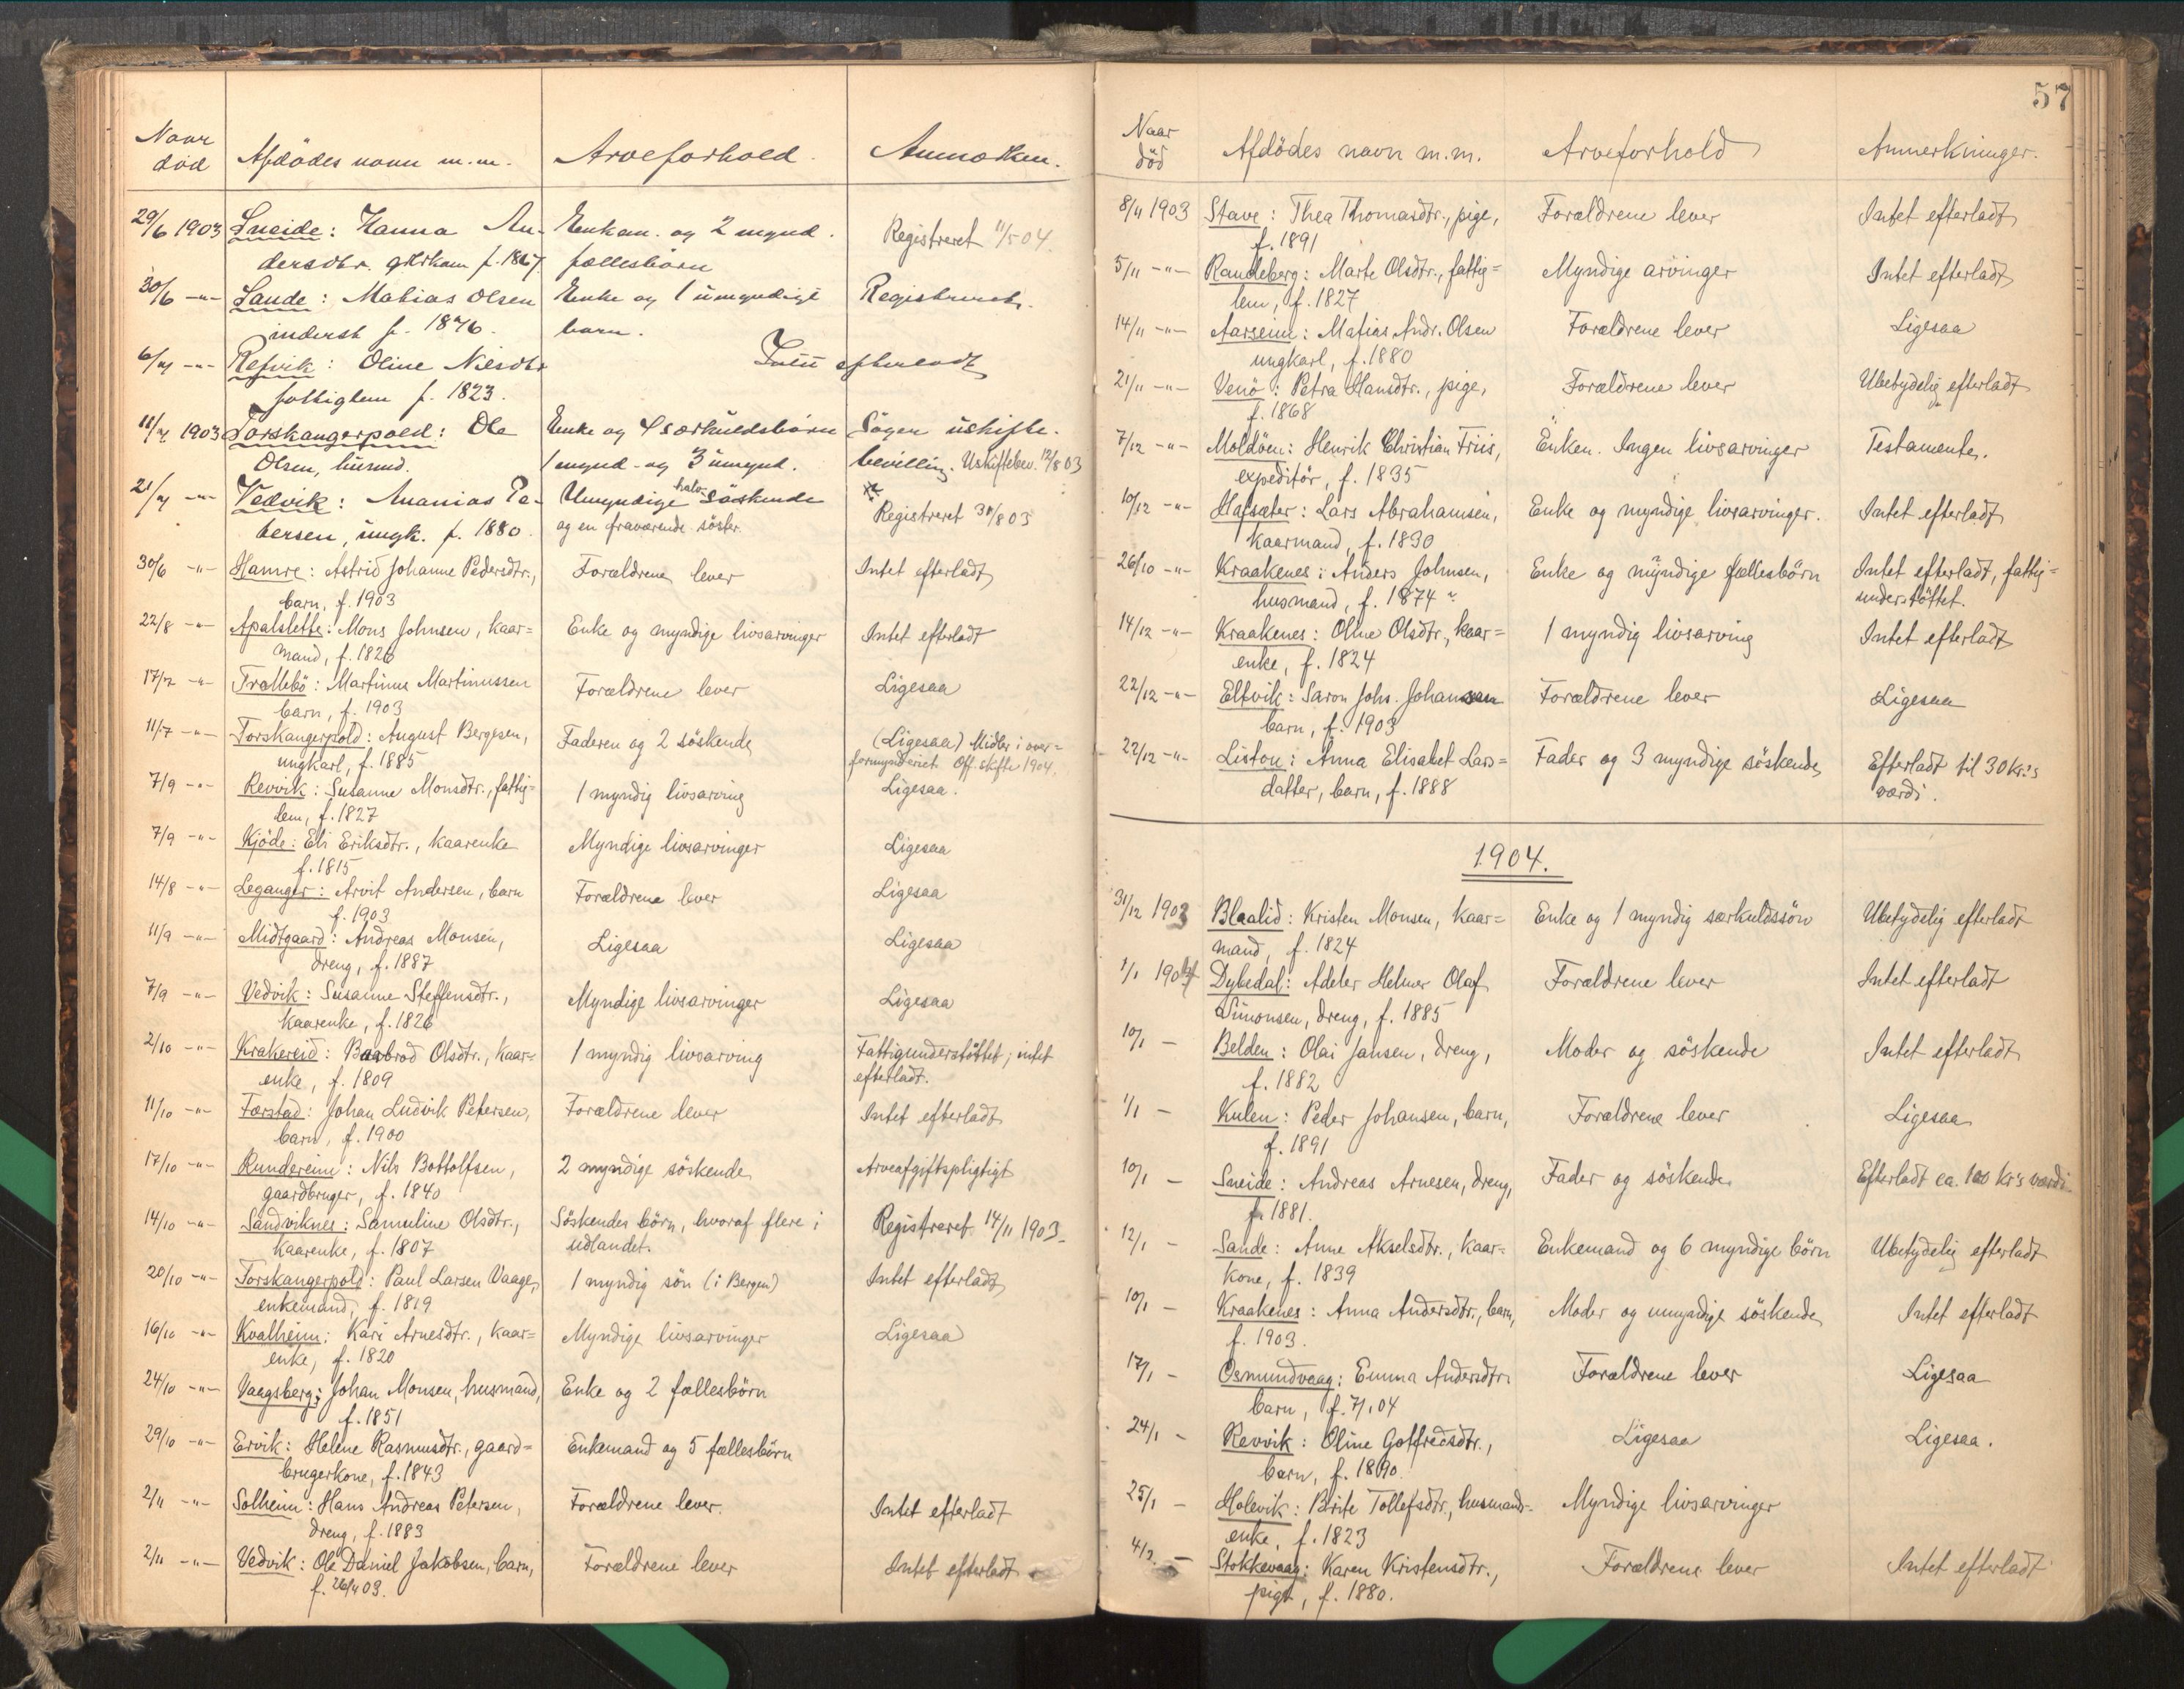 Naar
död Afdödes navn m.m. Arveforhold. Anmærkn.
29/6 1903 Sneide: Hanna An- Enkem. og 2 mynd.
dersdtr. grbrkone f. 1867 fællesbörn Registreret 11/5 04.
30/6 -"- Sande: Matias Olsen Enke og 1 umyndigt Registreret.
inderst f. 1876. barn.
6/7 -"- Refvik: Oline Nilsdtr Intet efterladt
fattiglem f. 1823.
11/7 1903 Torskangerpold: Ole Enke og 4 særkuldsbörn Söger uskifte-
Olsen, husmd. 1 mynd- og 3 umynd. bevilling. Uskiftebev. 12/8 03
21/7 -"- Vedvik: Ananias Pe- Umyndige halv-söskende
dersen, ungk. f. 1880. og en fraværende söster. Registreret 31/8 03
30/6 -"- Hamre: Astrid Johanne Pedersdtr., Forældrene lever Intet efterladt
barn, f. 1903
22/8 -"- Apalslette: Mons Johnsen, kaar= Enke og myndige livsarvinger Intet efterladt
mand, f. 1826
17/12 -"- Trællebö: Martinus Martinussen Forældrene lever Ligesaa
barn, f. 1903
11/7 -"- Torskangerpold: August Bergesen, Faderen og 2 söskende (Ligesaa) Midler i over=
ungkarl, f. 1885 formynderiet. Off. skifte 1904.
7/9 -"- Revvik: Susanne Monsdtr., fattig= 1 myndig livsarving Ligesaa.
lem, f. 1827
7/9 -"- Kjöde: Eli Eriksdtr., kaarenke Myndige livsarvinger Ligesaa
f. 1815
14/8 -"- Leganger: Arvit Andersen, barn Forældrene lever Ligesaa
f. 1903
11/9 -"- Midtgaard: Andreas Monsen, Ligesaa Ligesaa
dreng, f. 1887
7/9 -"- Vedvik: Susanne Steffensdtr., Myndige livsarvinger Ligesaa
kaarenke, f. 1826
2/10 -"- Krakereid: Baabrod Olsdtr., kaar= 1 myndig livsarving Fattigunderstöttet; intet
enke, f. 1809 efterladt.
11/10 -"- Færstad: Johan Ludvik Petersen, Forældrene lever Intet efterladt
barn, f. 1900
17/10 -"- Rundereim: Nils Bottolfsen, 2 myndige söskende Arveafgiftspligtigt
gaardbruger, f. 1840
14/10 -"- Sandviknes: Samuline Olsdtr., Söskendes börn, hvoraf flere i Registreret 14/11 1903.
kaarenke, f. 1807 udlandet.
20/10 -"- Torskangerpold: Paul Larsen Vaage, 1 myndig sön (i Bergen) Intet efterladt
enkemand, f. 1819
16/10 -"- Kvalheim: Kari Arnesdtr., kaar= Myndige livsarvinger Ligesaa
enke, f. 1820
24/10 -"- Vaagsberg: Johan Monsen, husmand, Enke og 2 fællesbörn
f. 1851
29/10 -"- Ervik: Helene Rasmusdtr., gaard= Enkemand og 5 fællesbörn
brugerkone, f. 1843
2/11 -"- Solheim: Hans Andreas Petersen, Forældrene lever. Intet efterladt
dreng, f. 1883
2/11 -"- Vedvik: Ole Daniel Jakobsen, barn, Forældrene lever Intet efterladt
f. 26/4 03.
57
Naar
död Afdödes navn m.m. Arveforhold Anmerkninger.
8/11 1903 Stave: Thea Thomasdtr., pige, Forældrene lever Intet efterladt
f. 1891
5/11 -"- Raudeberg: Marte Olsdtr., fattig= Myndige arvinger Intet efterladt
lem, f. 1827
14/11 -"- Aarseim: Matias Andr. Olsen Forældrene lever Ligesaa
ungkarl, f. 1880
21/11 -"- Venö: Petra Hansdtr., pige, Forældrene lever Ubetydelig efterladt
f. 1868
7/12 -"- Moldöen: Henrik Christian Friis, Enken. Ingen livsarvinger Testamente.
expeditör, f. 1835
10/12 -"- Hafsæter: Lars Abrahamsen, Enke og myndige livsarvinger. Intet efterladt
kaarmand, f. 1830
26/10 -"- Kraakenes: Anders Johnsen, Enke og myndige fællesbörn Intet efterladt, fattig=
husmand, f. 1874 understöttet.
14/12 -"- Kraakenes: Oline Olsdtr., kaar= 1 myndig livsarving Intet efterladt
enke, f. 1824
22/12 -"- Eltvik: Saron Johs. Johansen Forældrene lever Ligesaa
barn, f. 1903
22/12 -"- Liston: Anna Elisabet Lars= Fader og 3 myndige söskende Efterladt til 30 kr.s
datter, barn, f. 1888 værdi.
1904.
31/12 1903 Blaalid: Kristen Monsen, kaar= Enke og 1 myndig særkuldssön Ubetydelig efterladt
mand, f. 1824
1/1 1904 Dybedal: Adeler Helmer Olaf Forældrene lever Intet efterladt
Simonsen, dreng, f. 1885
10/1 - Belden: Olai Jansen, dreng, Moder og söskende Intet efterladt
f. 1882
1/1 - Kulen: Peder Johansen, barn, Forældrene lever Ligesaa
f. 1891
10/1 - Sneide: Andreas Arnesen, dreng, Fader og söskende Efterladt ca. 100 kr's værdi
f. 1881.
12/1 - Sande: Anne Akselsdtr., kaar= Enkemand og 6 myndige börn Ubetydelig efterladt
kone, f. 1839
10/1 - Kraakenes: Anna Andersdtr., barn, Moder og umyndige söskende Intet efterladt
f. 1903.
17/1 - Osmundvaag: Emma Andersdtr. Forældrene lever Ligesaa
barn, f. 7/1 04
24/1 - Revvik: Oline Gotfredsdtr., Ligesaa Ligesaa.
barn, f. 1890.
25/1 - Holevik: Brite Tollefsdtr., husmands- Myndige livsarvinger
enke, f. 1823
4/2. - Stokkevaag: Karen Kristensdtr., Forældrene lever Intet efterladt
pige, f. 1880.